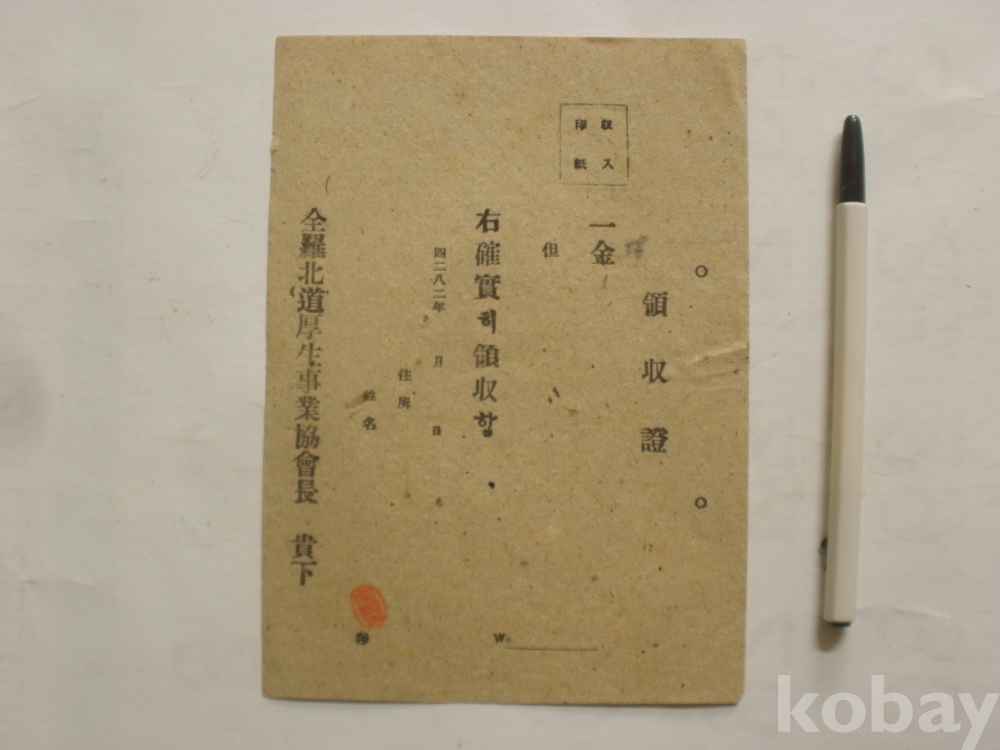 收入
印紙
領收證
一金
但
右確實히領收함
四二八二年 月 日
住所
姓名
全羅北道厚生事業協會長 貴下
W
kobay